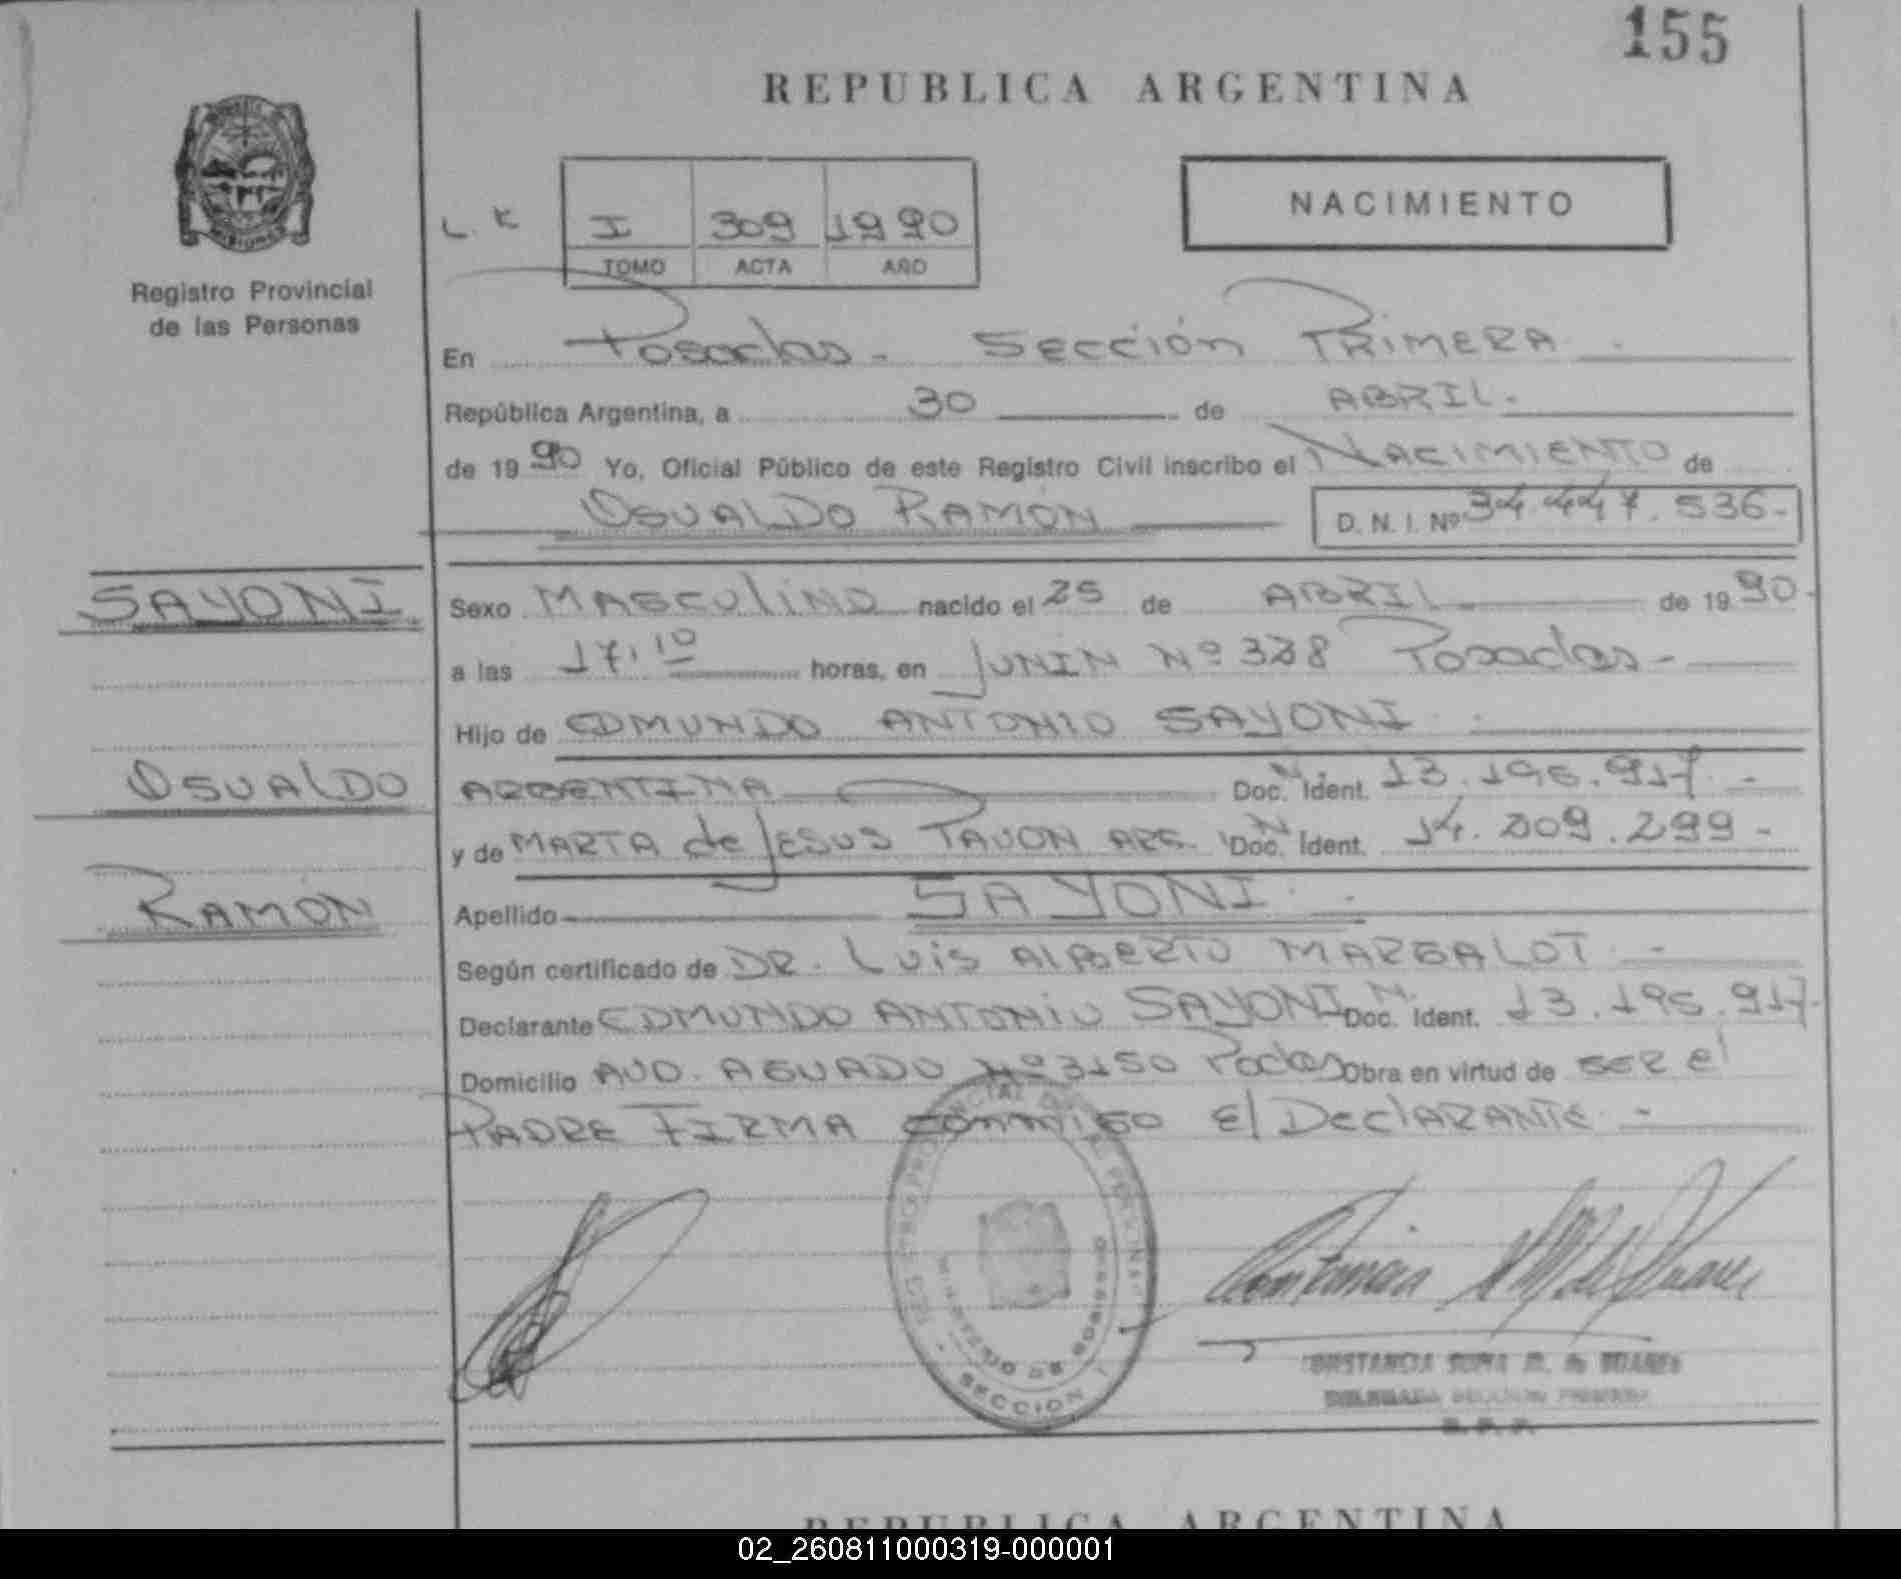 155
REPUBLICA ARGENTINA
MISIONES
Registro Provincial
de las Personas
L. K I 309 1990
TOMO ACTA AÑO
NACIMIENTO
En Posadas - Sección PRIMERA
República Argentina, a 30 de ABRIL.
de 1990 Yo, Oficial Público de este Registro Civil inscribo el NACIMIENTO de
OSUALDO RAMÓN D. N. I. Nº 34.447.536-
SAYONI
Sexo MASCULINO nacido el 25 de ABRIL de 1990-
a las 17,10 horas, en JUNIN Nº 338 Posadas-
Hijo de EDMUNDO ANTONIO SAYONI
OSUALDO
ARGENTINA Doc. N Ident. 13.195.917-
y de MARTA de JESUS PAVON ARG. Doc. N Ident. 14.209.299-
RAMÓN
Apellido SAYONI
Según certificado de DR. LUIS ALBERTO MARGALOT -
Declarante EDMUNDO ANTONIO SAYONI Doc. N. Ident. 13.195.917-
Domicilio AVD. AGUADO Nº 3150 Podas Obra en virtud de SER el
PADRE FIRMA CONMIGO El DEClARANTE -
SECCION 1
MINISTERIO DE GOBIERNO
CONSTANCIA SOFIA M. de SUAREZ
DELEGADA SECCION PRIMERA
R. P. P.
REPUBLICA ARGENTINA
02_260811000319-000001